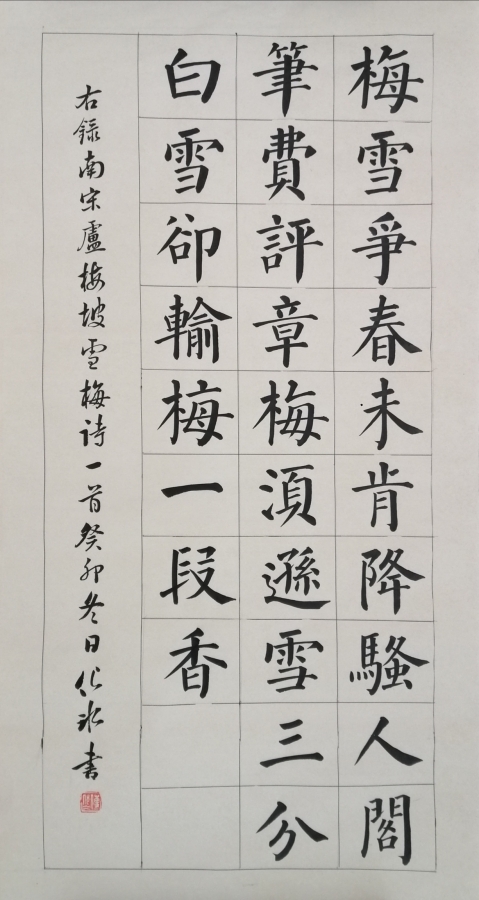 梅雪爭春未肯降騷人閣
筆費評章梅須遜雪三分
白雪卻輸梅一段香
右録南宋盧梅坡雪梅詩一首癸卯冬日化冰書